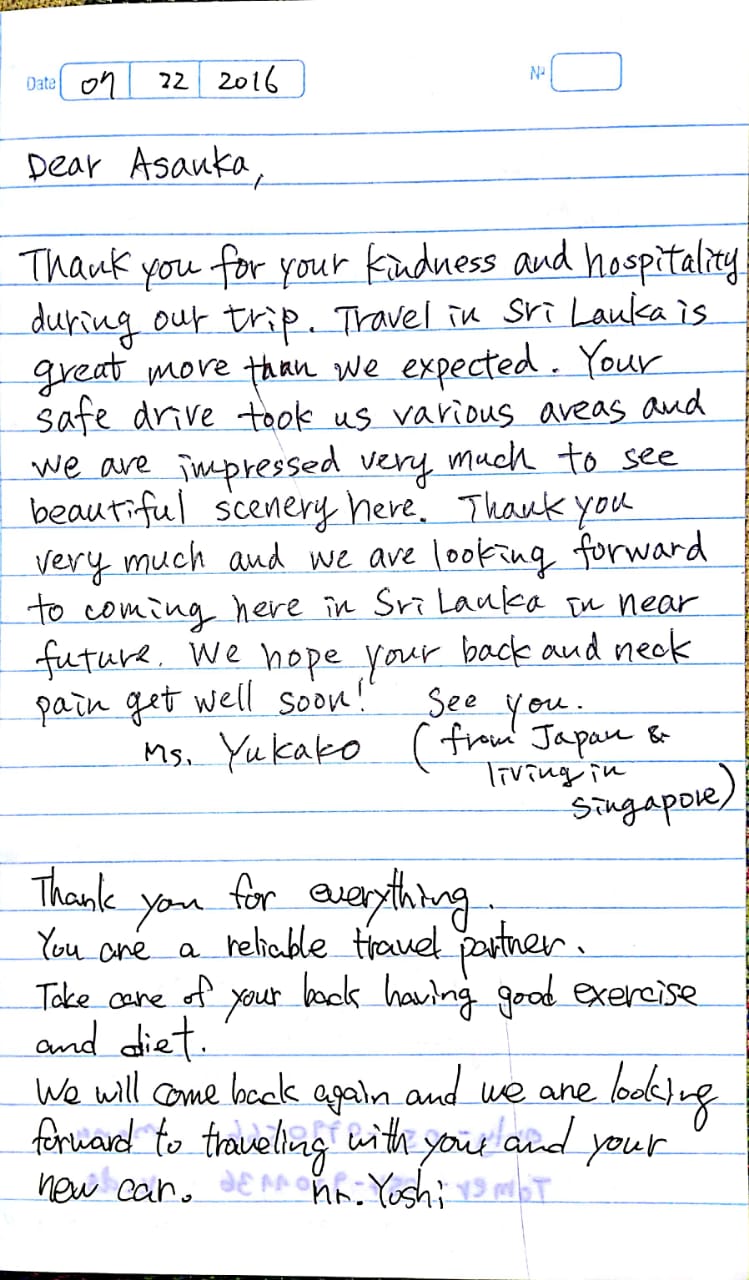 Date 07 22 2016 Nº
Dear Asanka,
Thank you for your kindness and hospitality
during our trip. Travel in Sri Lanka is
great more than we expected. Your
safe drive took us various areas and
we are impressed very much to see
beautiful scenery here. Thank you
very much and we are looking forward
to coming here in Sri Lanka in near
future. We hope your back and neck
pain get well soon! See you.
Ms. Yukako (from Japan &
living in
Singapore)
Thank you for everything.
You are a reliable travel partner.
Take care of your back having good exercise
and diet.
We will come back again and we are looking
forward to traveling with your and your
new car. Mr. Yoshi